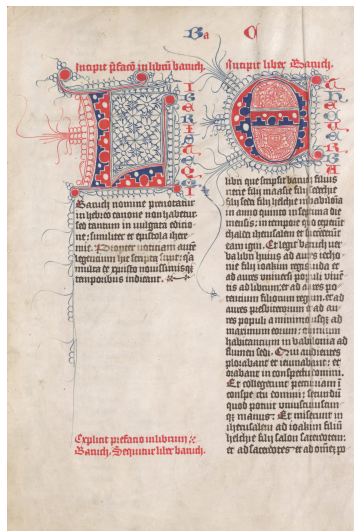 Ba C
Incipit p̄facō in librū baruch.
LIBER ISTE QUI
Baruch nomine prenotatur
in hebreo canone non habetur.
sed tantum in vulgata editio
ne; similiter et epistola ihere
mie. Propter noticiam autē
legencium hic scripta sunt: qa
multa de xpisto nouissimisqꝫ
temporibus indicant.
Explicit prefacio in librum
Baruch. Sequitur liber baruch.
Incipit liber Baruch.
ET HEC UERBA
libri que scripsit baruch filius
nerie filij maasie filij sedechie
filij sedei filij helchie in babilonia
in anno quinto in septima die
mensis; in tempore quo ceperūt
chaldei iherusalem et succenderūt
eam igni. Et legit baruch uer
ba libri huius ad aures iecho
nie filij ioakim regis iuda et
ad aures vniuersi populi venien
tis ad librum: et ad aures po
tencium filiorum regum. et ad
aures presbiterorum et ad au
res populi a minimo usqꝫ ad
maximum eorum: omnium
habitancium in babilonia ad
flumen sedi. Qui audientes
plorabant et ieiunabant: et
orabant in conspectu domini.
Et collegerunt pecuniam ī
conspectu domini; secundū
quod potuit uniuscuiusqꝫ
manus: Et miserunt in
iherusalem ad ioakim filiū
helchie filij salon sacerdotem:
et ad sacerdotes et ad omnē po